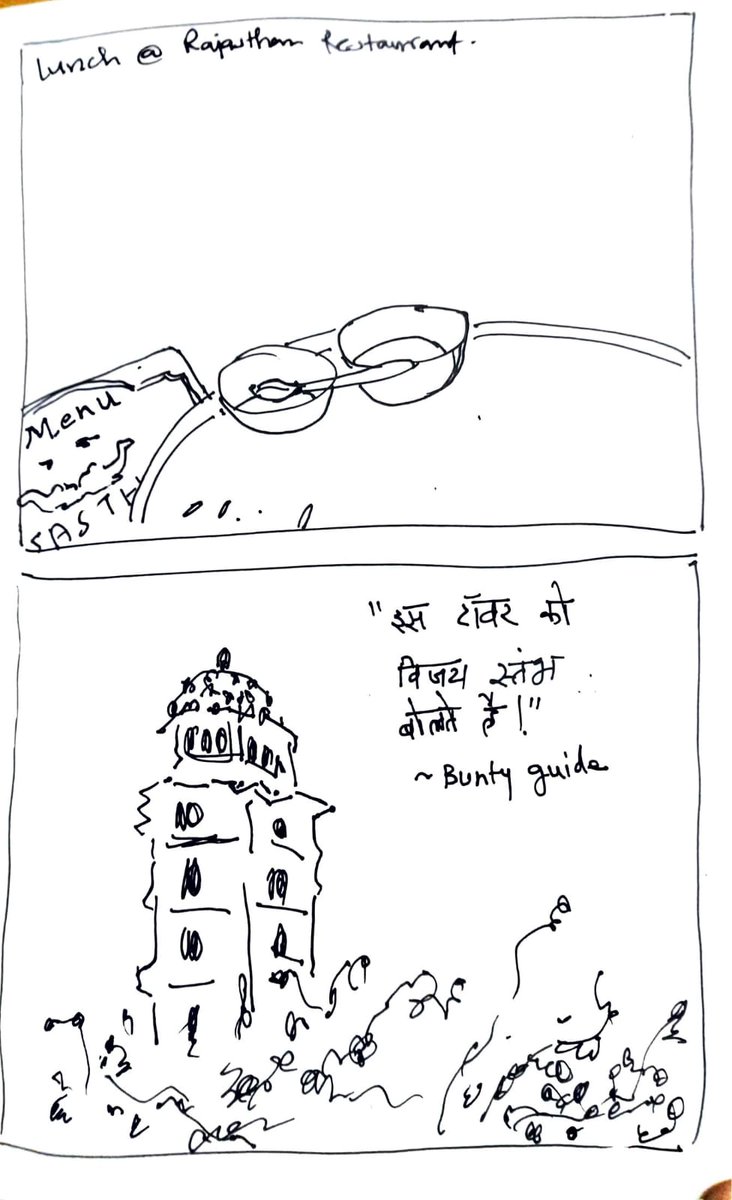 Lunch @ Rajputhan Restaurant.
Menu
"इस टॉवर को
विजय स्तंभ
बोलते हैं!"
~ Bunty guide